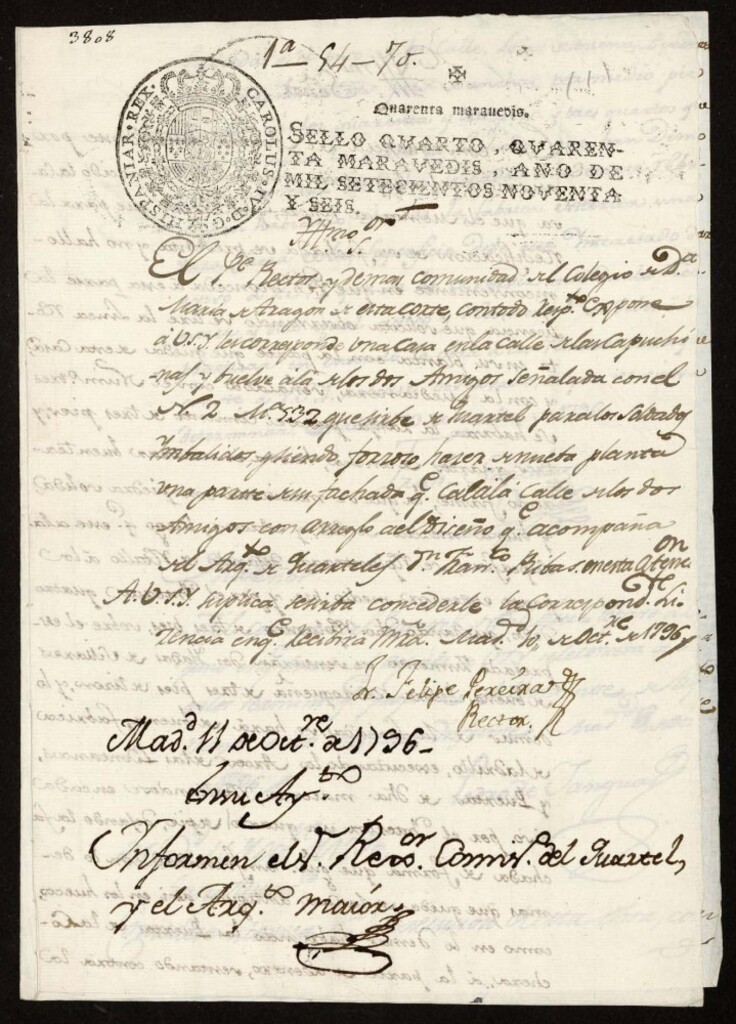 3808
1ª — 54 — 70.
HISPANIAR. REX. CAROLUS IV D.G.
Quarenta maravedis.
SELLO QVARTO, QVAREN-
TA MARAVEDIS, AÑO DE
MIL SETECIENTOS NOVENTA
Y SEIS.
Yttmo. Sor.
El Pe. Rector y demas comunidad del Colegio de Da.
Maria de Aragon de esta Corte, con todo respto. Expone
á V.S.Y. le corresponde una Casa en la Calle de las Capuchi
nas y buelve á la de los dos Amigos señalada con el
N. 2 Ma. 532 que sirbe de Quartel para los Soldados
Imbalidos, y siendo forzoso hazer de nueva planta
una parte de su fachada q. cae á la Calle de los dos
Amigos con arreglo al Diseño q. acompaña
del Arqto. de Quarteles Dn. Franco. Ribas, en esta atenc
on
A. V.S.Y. suplica se sirba concederle la correspondte. Li
cencia en q. recibirá Mrd. Madd. 10, de Octre. de 1796,
Fr. Felipe Pereira
Rector.
Madd. 11 de Octre. de 1796 —
En su Ayto.
Informen el Sr. Rexor. Comiso. del Quartel,
y el Arqto. maiór.